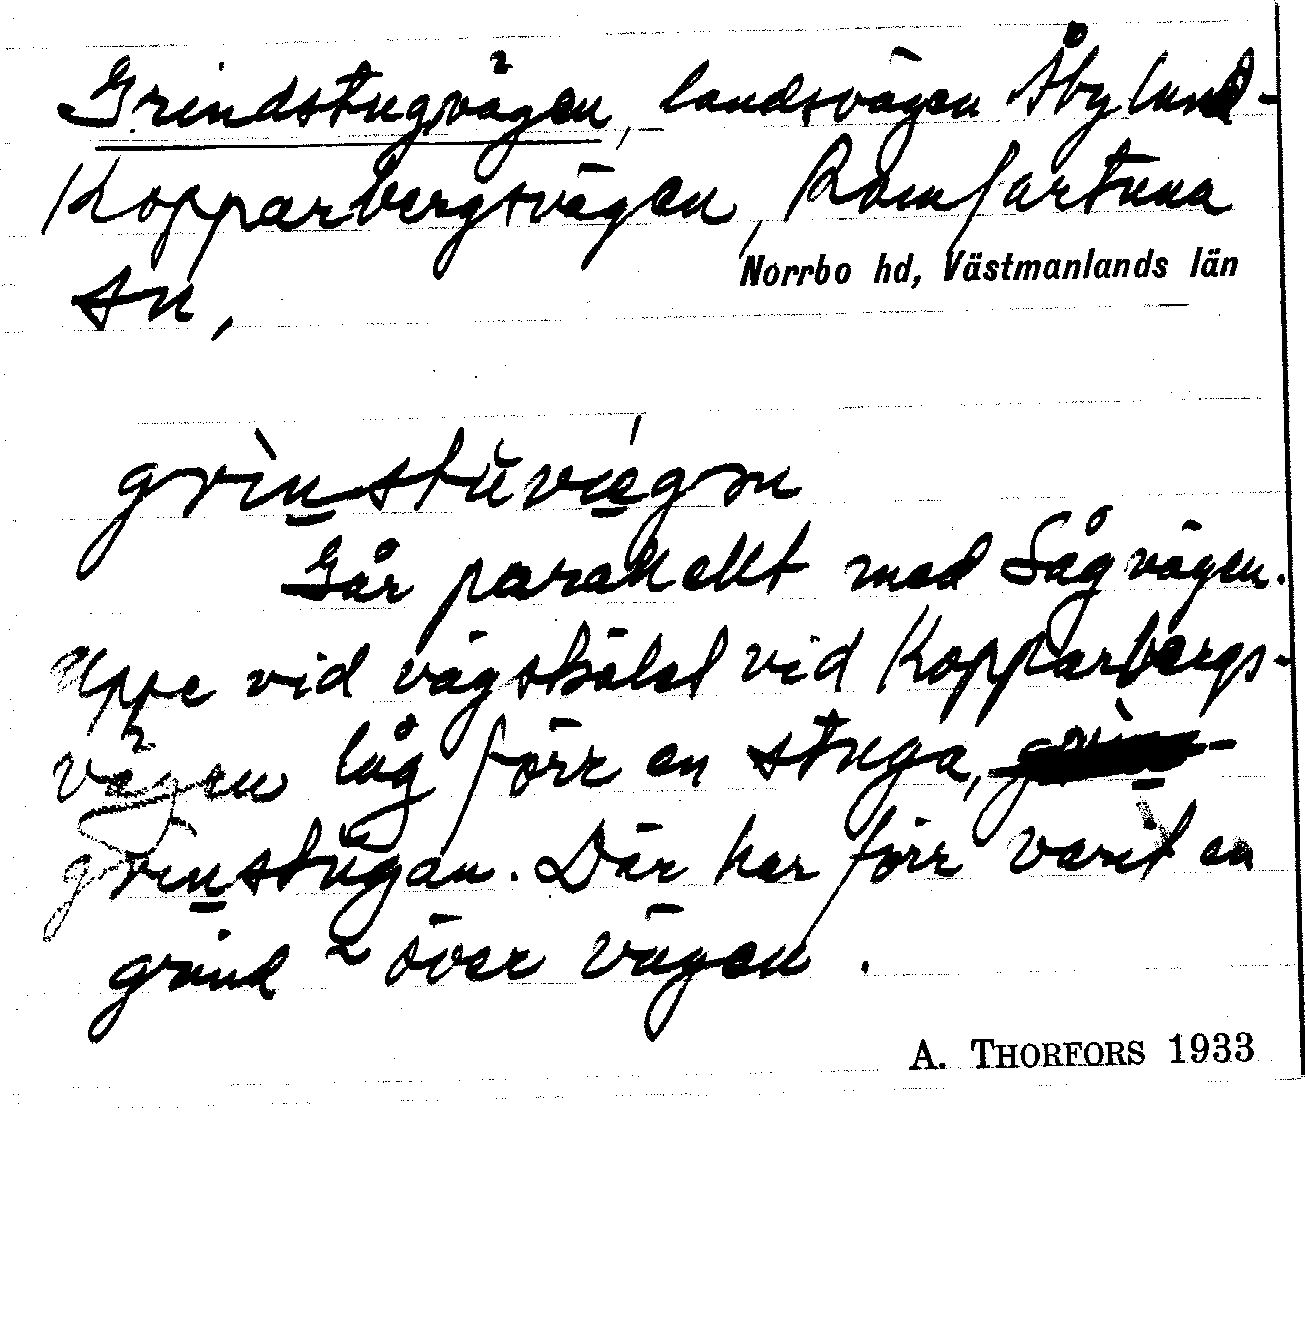 Grindstugvägen, landsvägen Åbylund-
Kopparbergsvägen, Romfartuna
Norrbo hd, Västmanlands län
sn,
grìnstŭvǽgən
Går parallellt med Sågvägen.
Uppe vid vägskälet vid Kopparbergs-
vägen låg förr en stuga,
grinstŭgan. Där har förr varit en
grind över vägen.
A. THORFORS 1933